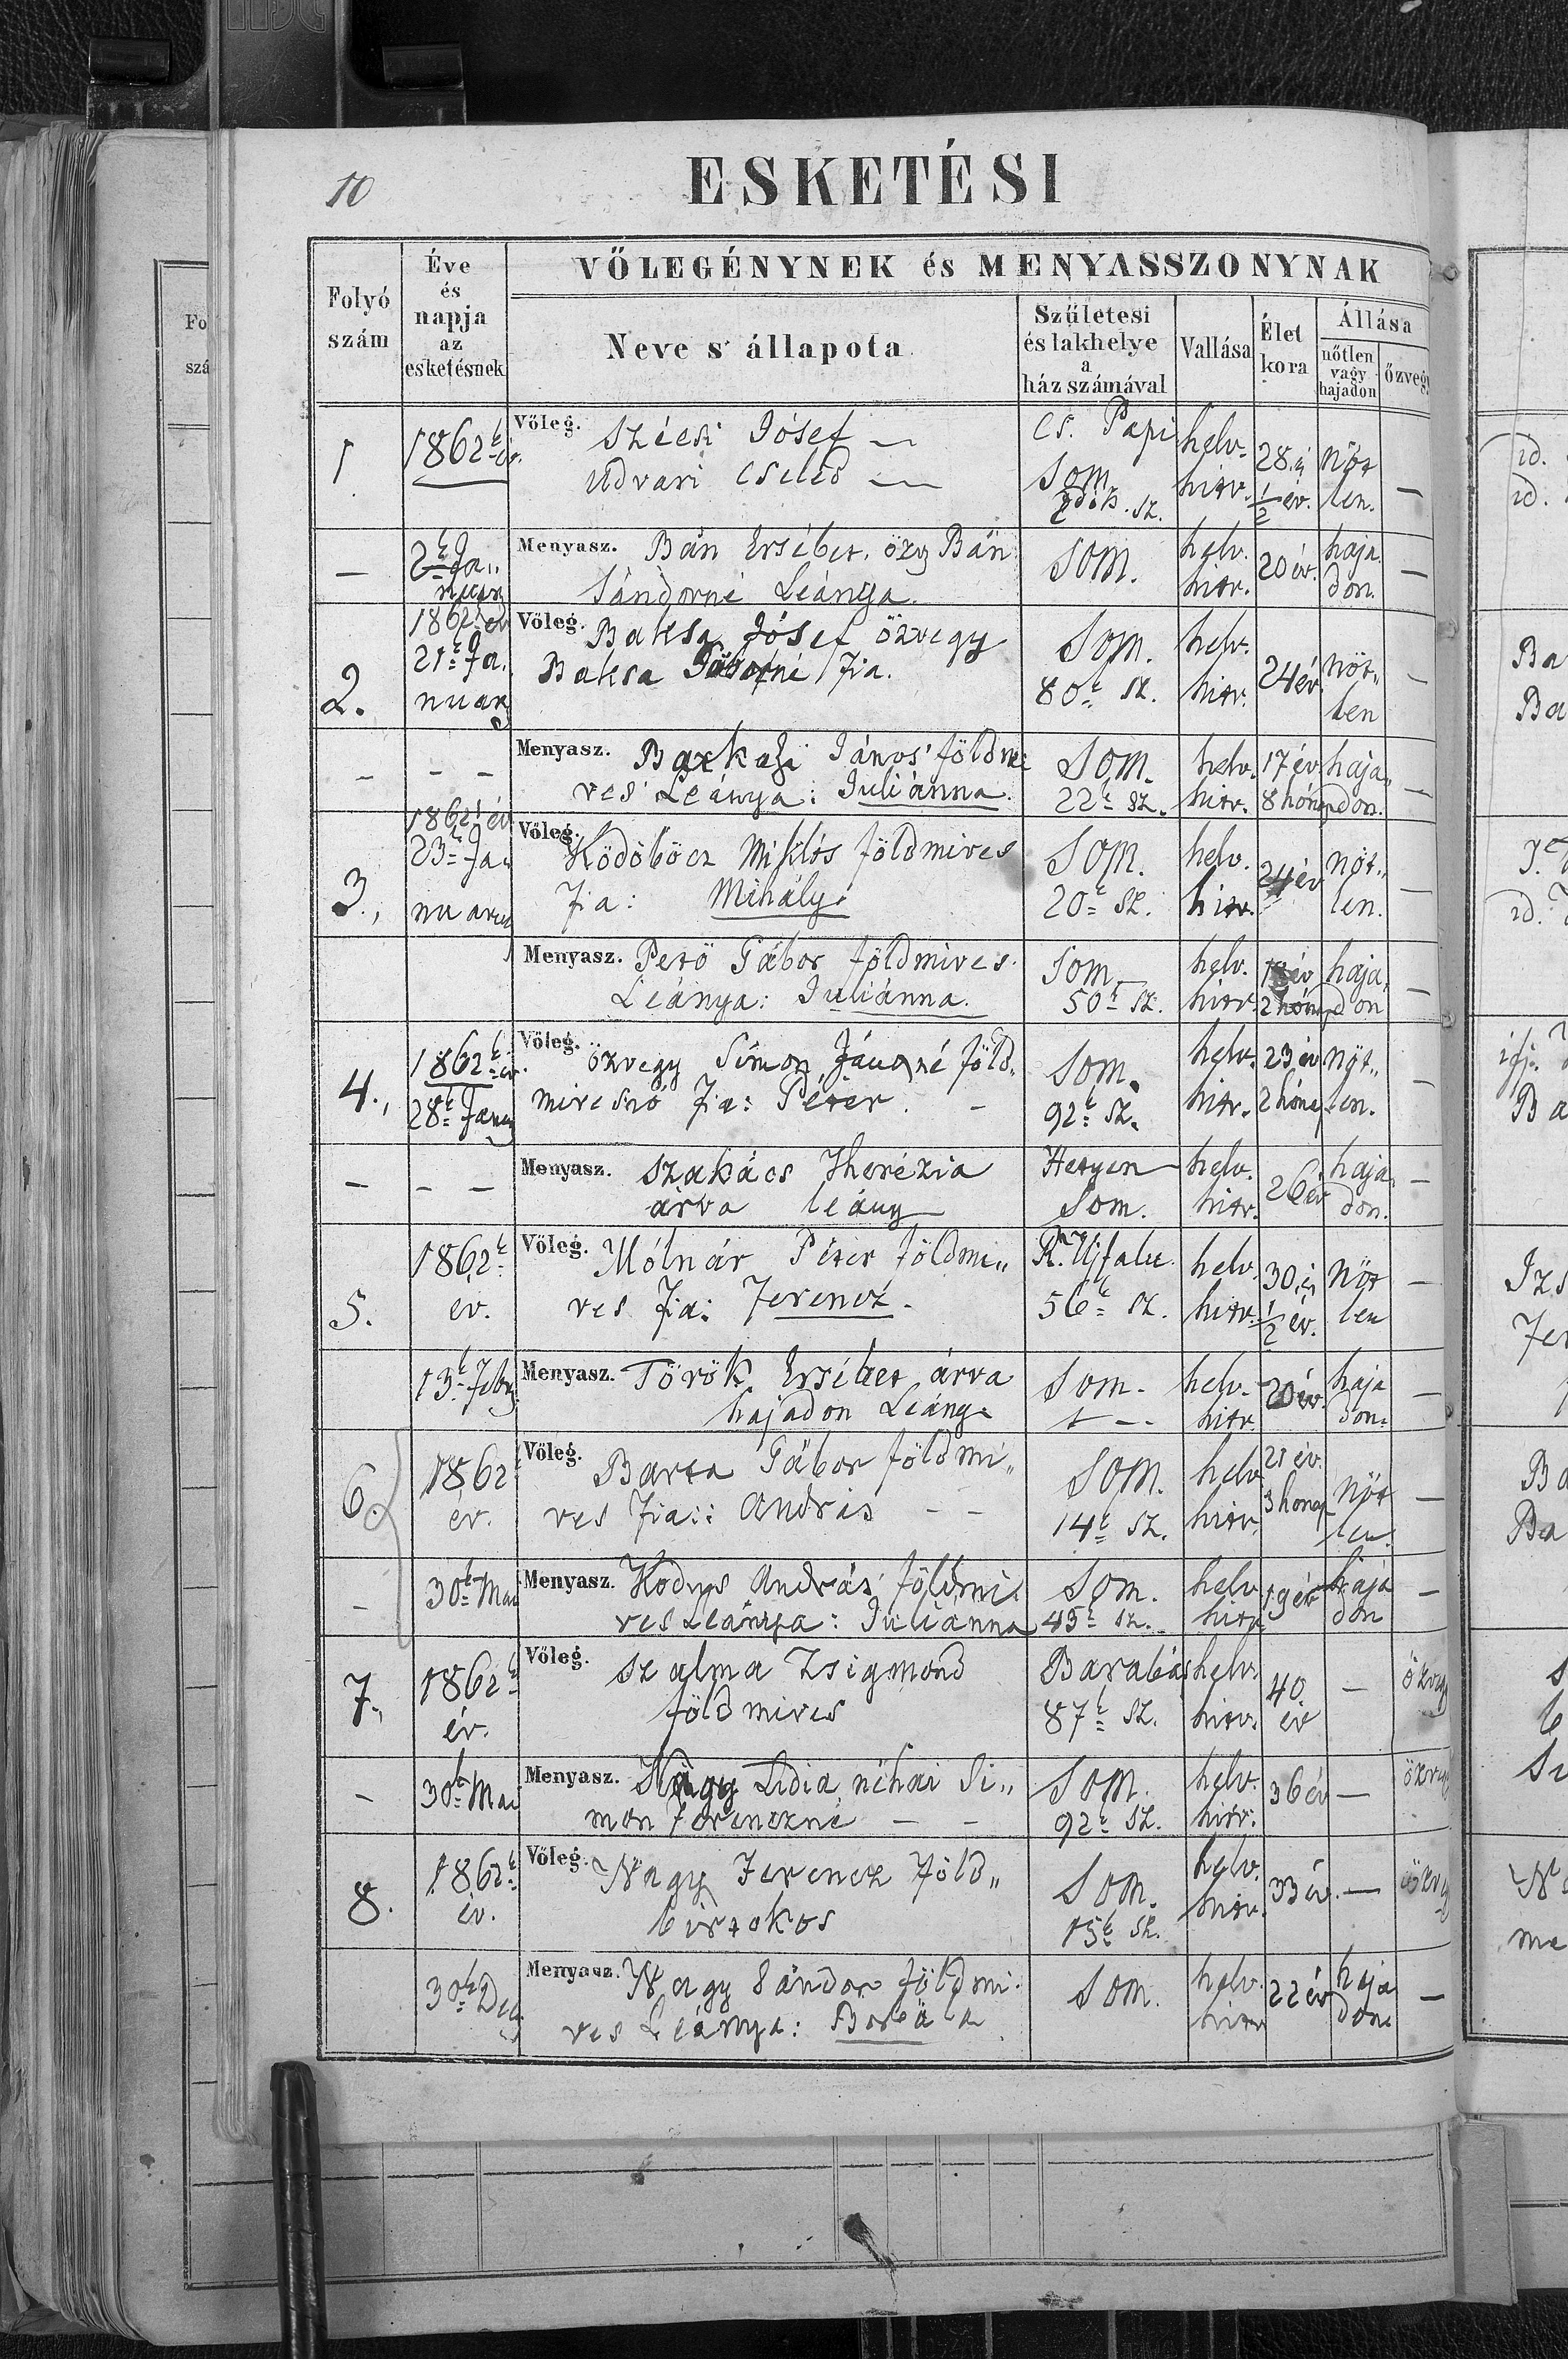 10
ESKETÉSI
Folyó szám
Éve és napja az esketésnek
VŐLEGÉNYNEK és MENYASSZONYNAK
Neve s' állapota
Születesi és lakhelye a ház számával
Vallása
Élet kora
Állása
nőtlen vagy hajadon
özvegy
1. 1862k év. Vőleg. Szécsi Jósef — Cs. Papi helv. 28. és nöt
Udvari Cseléd — Som hitv. 1/2 év. len. —
— 2k Ja„ Menyasz. Bán Ersébet. özv Bán Som. helv. 20 év. haja —
nuary Sándorné Leánya. hitv. don.
2. 1862k év Vőleg. Baksa Jósef özvegy Som. helv. 24 év nöt„ —
21k Ja. Baksa fia. 80k sz. hitv. len
nuary
– – – Menyasz. Barkaszi János földmi Som. helv. 17 év haja„ —
ves Leánya: Juliánna. 22k sz. hitv. 8 hónap don.
3., 1862k év Vőleg. Ködöböcz Miklós földmives Som. helv. 24 év nöt„ —
23k Ja„ fia: Mihály. 20k sz. hitv. len.
Menyasz. Pető Gábor földmives Som helv. haja, —
Leánya: Juliánna. 50k sz. hitv. 2 hónap don
4., 1862k év. Vőleg. özvegy Simon Jánosné föld. Som. helv. 23 év nöt„ —
28k Január mivesnő fia: Péter. – 92k sz. hitv. 2 hónap len.
– – – Menyasz. Szakács Therézia Hetyen helv. 26 év haja„ —
árva leány Som. hitv. don.
5. 1862k Vőleg. Mólnár Péter földmi„ K. Ujfalu. helv. 30. és nöt —
év. ves fia: Ferencz. 56k sz. hitv. 1/2 év. len
13k Febr. Menyasz. Török Ersébet árva Som. helv. 20 év. haja —
hajadon Leány. hitv. don.
6. 1862 Vőleg. Barta Gábor földmi„ Som. helv 21 év. nöt —
év. ves fia: András – – 14k sz. hitv. 3 honap len.
– 30k Mai Menyasz. Kodus András földmi. Som. helv 19 év haja —
ves Leánya: Juliánna 45k sz. hitv don
7. 1862k Vőleg. Szalma Zsigmond Barabás helv 40 — özvegy
év. földmives 87k sz. hitv. év
– 30k Mai Menyasz. Nagy Lidia néhai Si„ Som. helv. 36 év — özvegy
mon Ferenczné – – 92k sz. hitv.
8. 1862k Vőleg. Nagy Ferencz Föld„ Som. helv. 33 év. — özvegy
év. birtokos 15k sz. hitv.
30k Dec Menyasz. Nagy Sándor földmi. Som. helv. 22 év haja —
ves Leánya: Borbála hitv don.